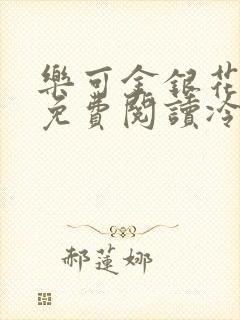 樂可金銀花
免費閱讀冷
郝蓮娜